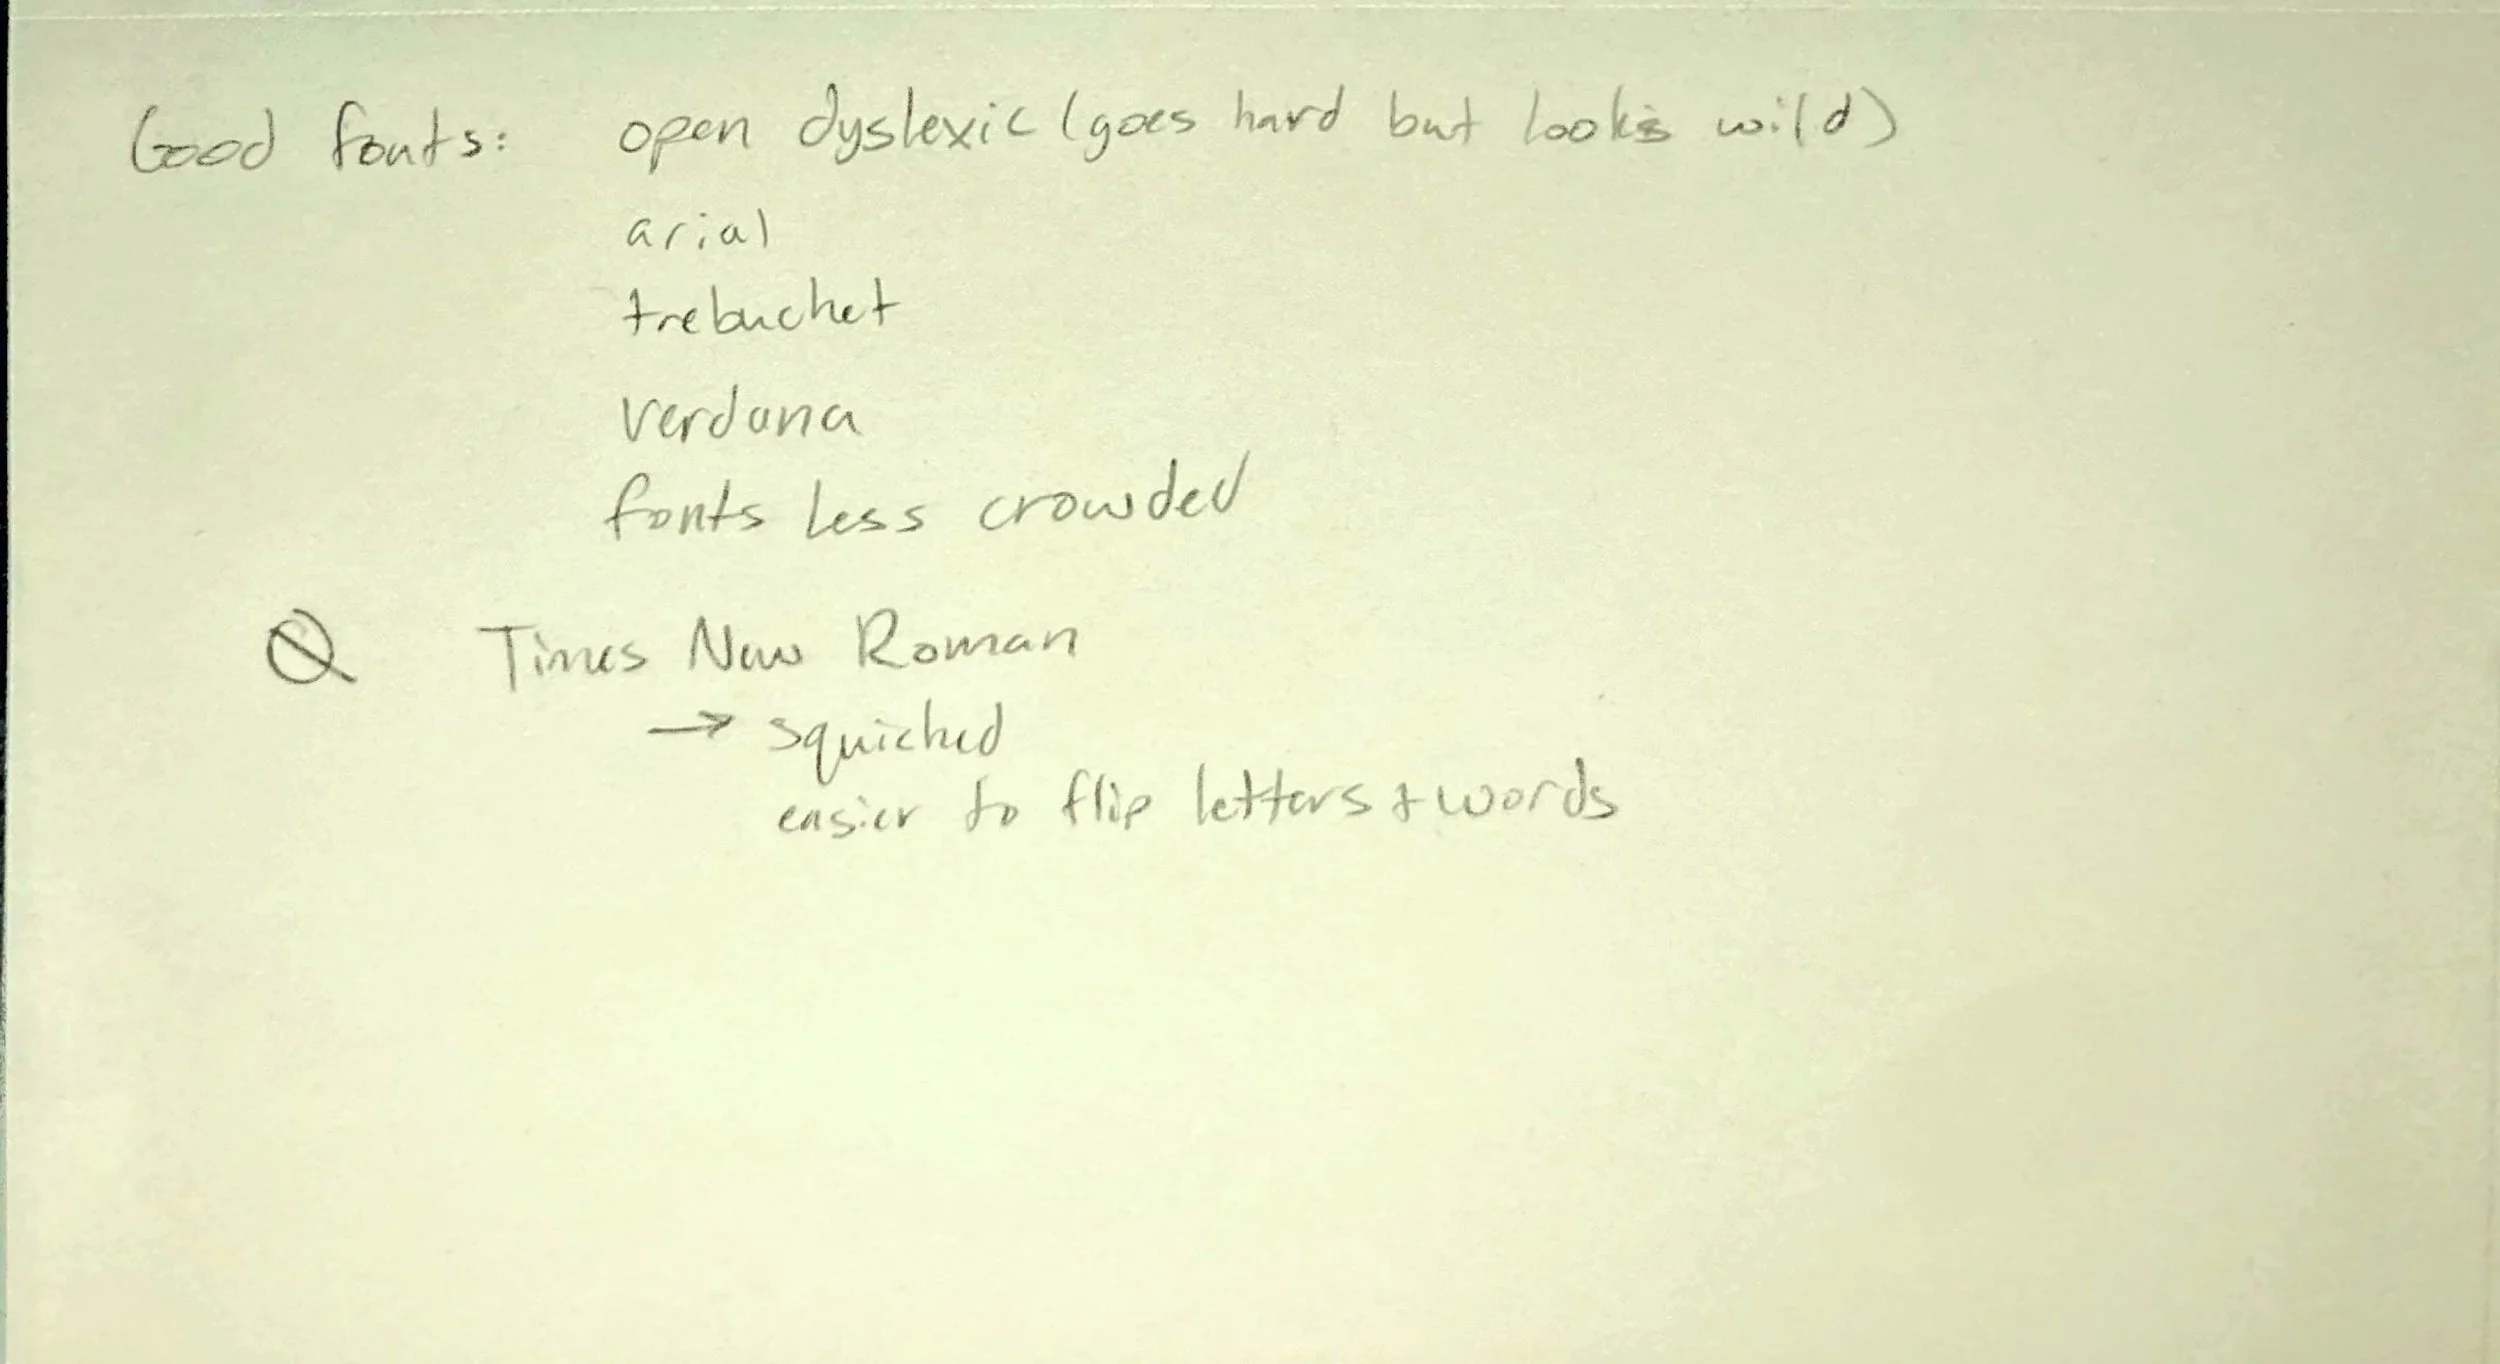 Good fonts: open dyslexic (goes hard but looks wild)
arial
trebuchet
verdana
fonts less crowded
Times New Roman
→ squiched
easier to flip letters + words